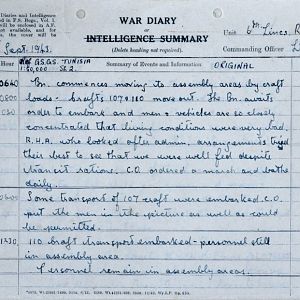 Diaries and Intelligence
in F.S. Regs., Vol. I.
will be enclosed in A.F.
not available, and for
WAR DIARY
or
INTELLIGENCE SUMMARY
(Delete heading not required).
Unit 6th Lincs. R
Commanding Officer L
Sept. 1943.
Hour
Ref GSGS. TUNISIA
1:50,000 Sh 2.
Summary of Events and Information
ORIGINAL
0640 Bn. commences moving to assembly areas by craft
loads - crafts 107 & 110 move out. The Bn. awaits
order to embark and men & vehicles are so closely
concentrated that living conditions were very bad.
R.H.A. who looked after admin. arrangements tried
their best to see that we were well fed despite
transit rations. C.O. ordered a march and bathe
daily.
Some transport of 107 craft were embarked. C.O.
put the men in the picture as well as could
be permitted.
110 craft transport embarked - personnel still
in assembly area.
Personnel remain in assembly areas.